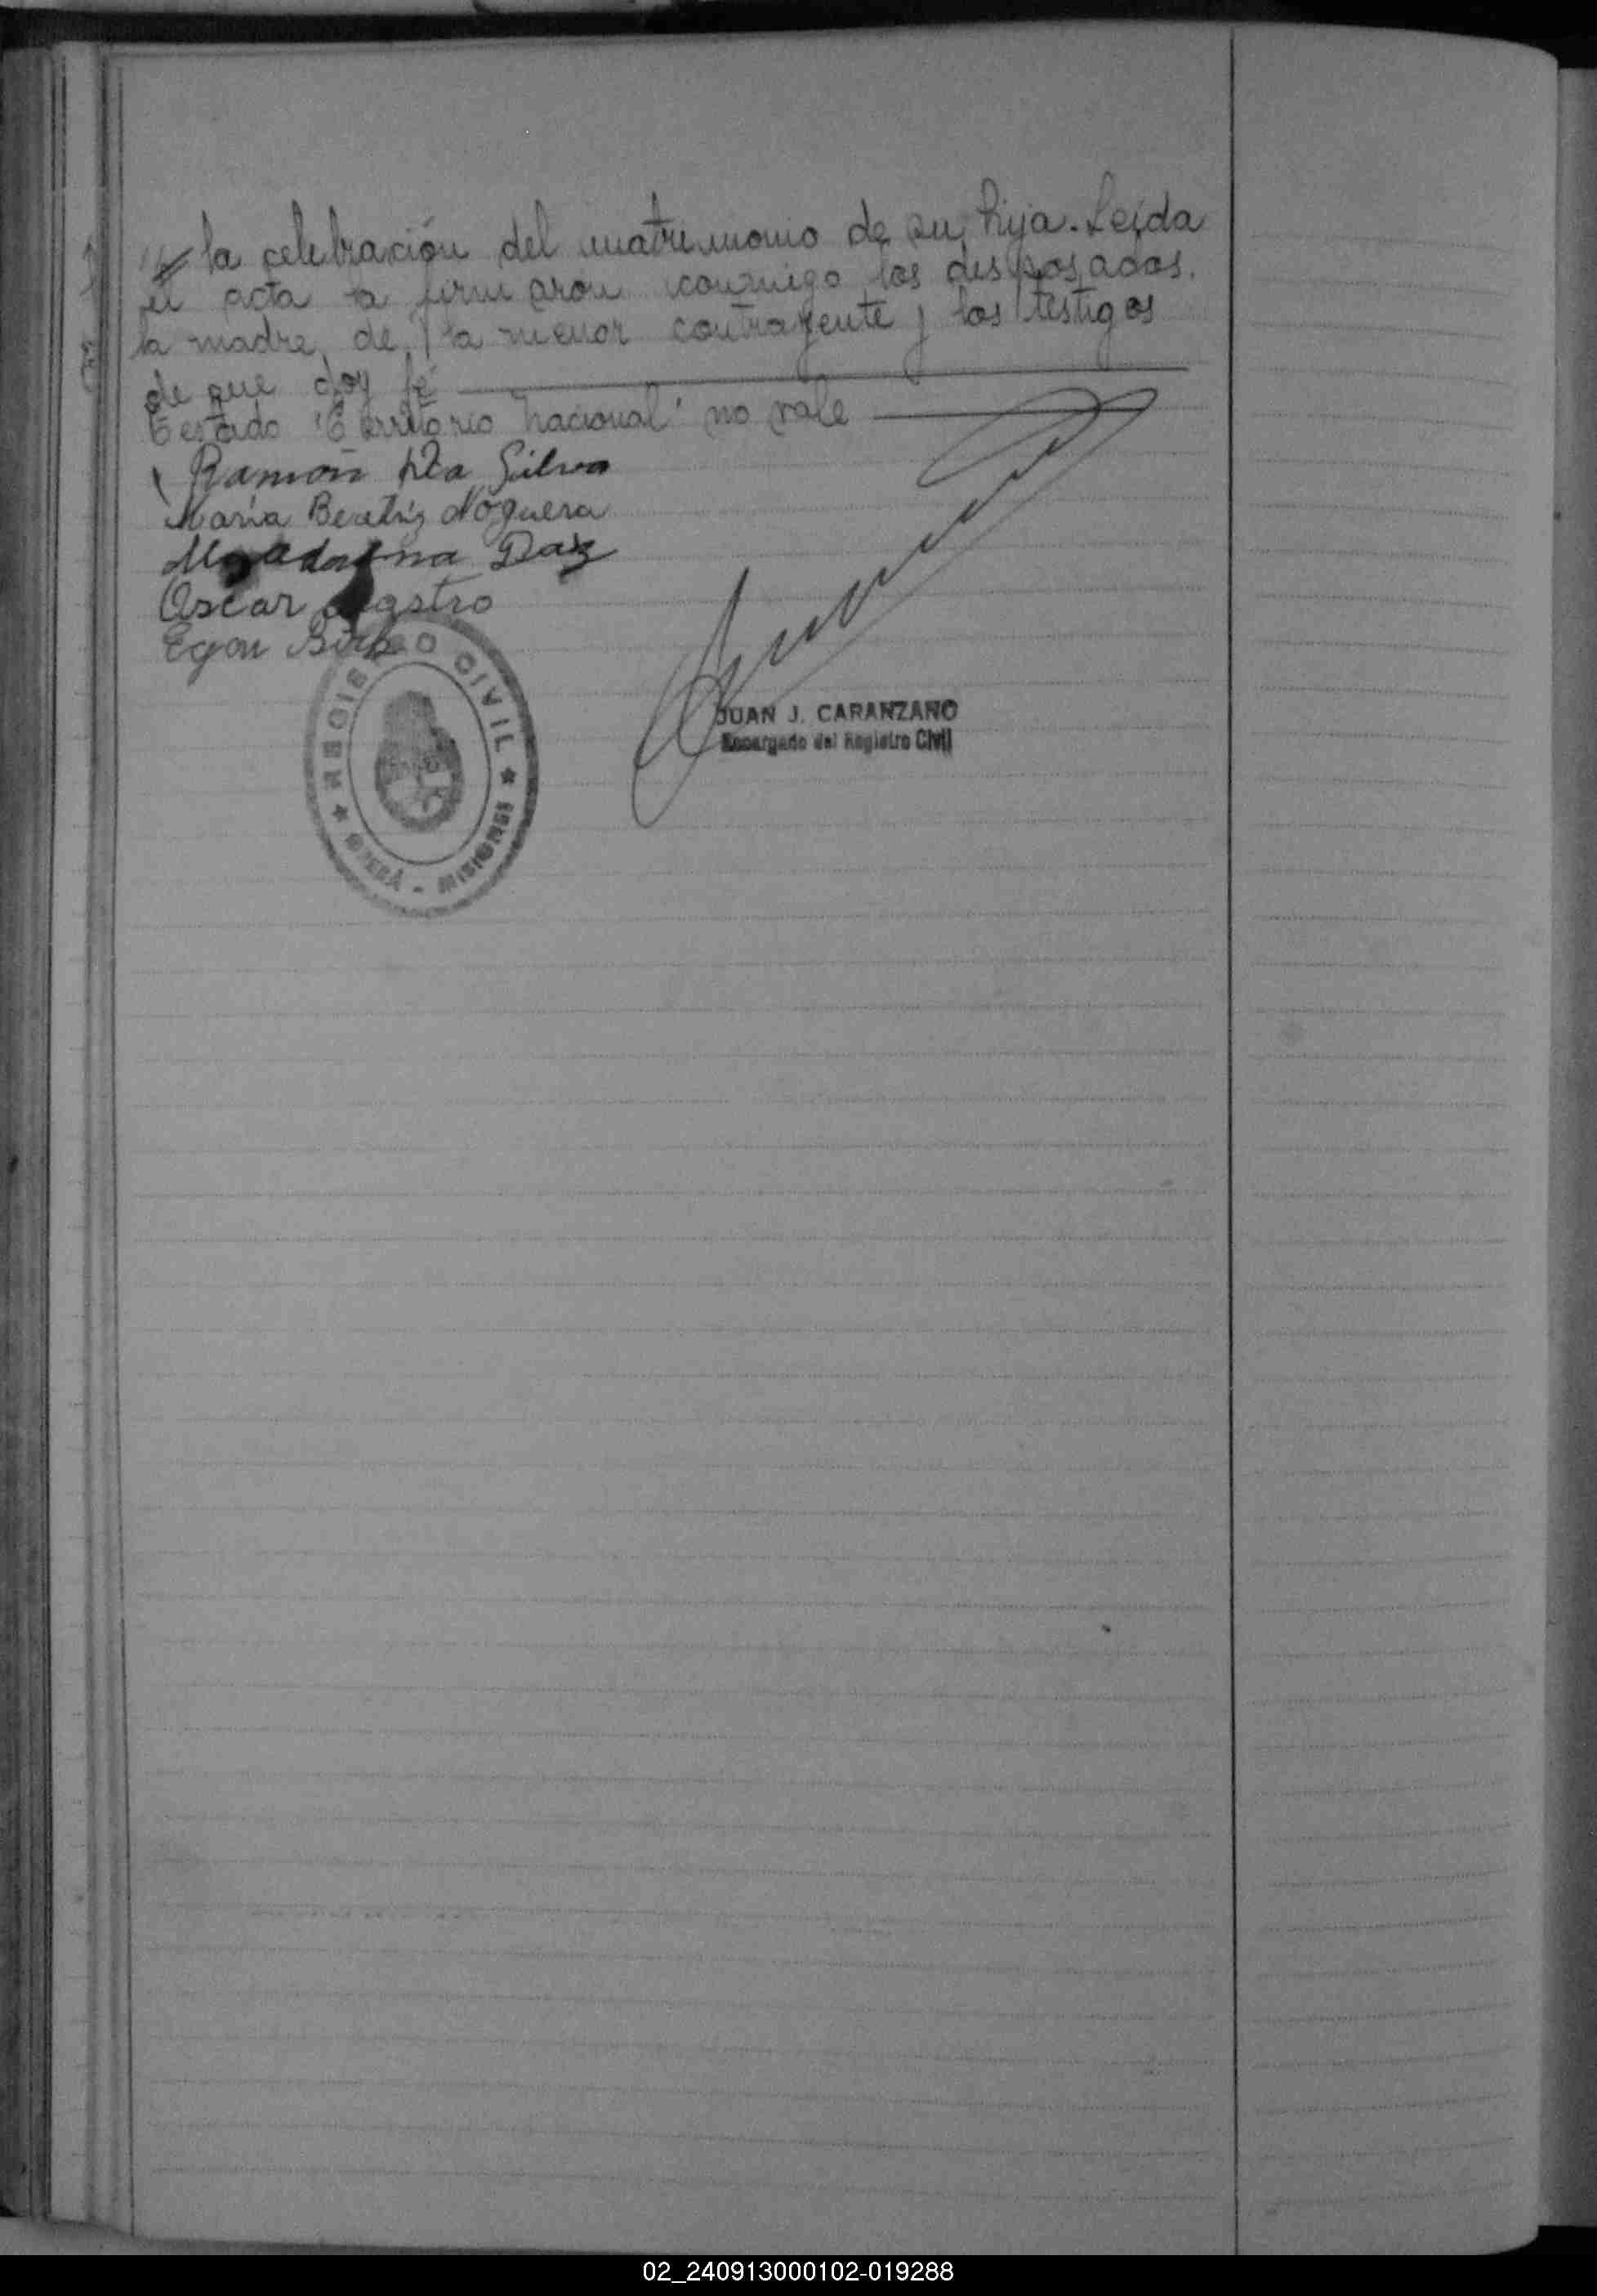 la celebración del matrimonio de su hija. Leida
el acta la firmaron conmigo los desposados.
la madre de la menor contrayente y los testigos
de que doy fé
Testado "Territorio nacional" no vale
Ramón Da Silva
María Beatriz Noguera
Magdalena Daz
Oscar Castro
Egon
REGISTRO CIVIL
OBERÁ - MISIONES
JUAN J. CARANZANO
Encargado del Registro Civil
02_240913000102-019288